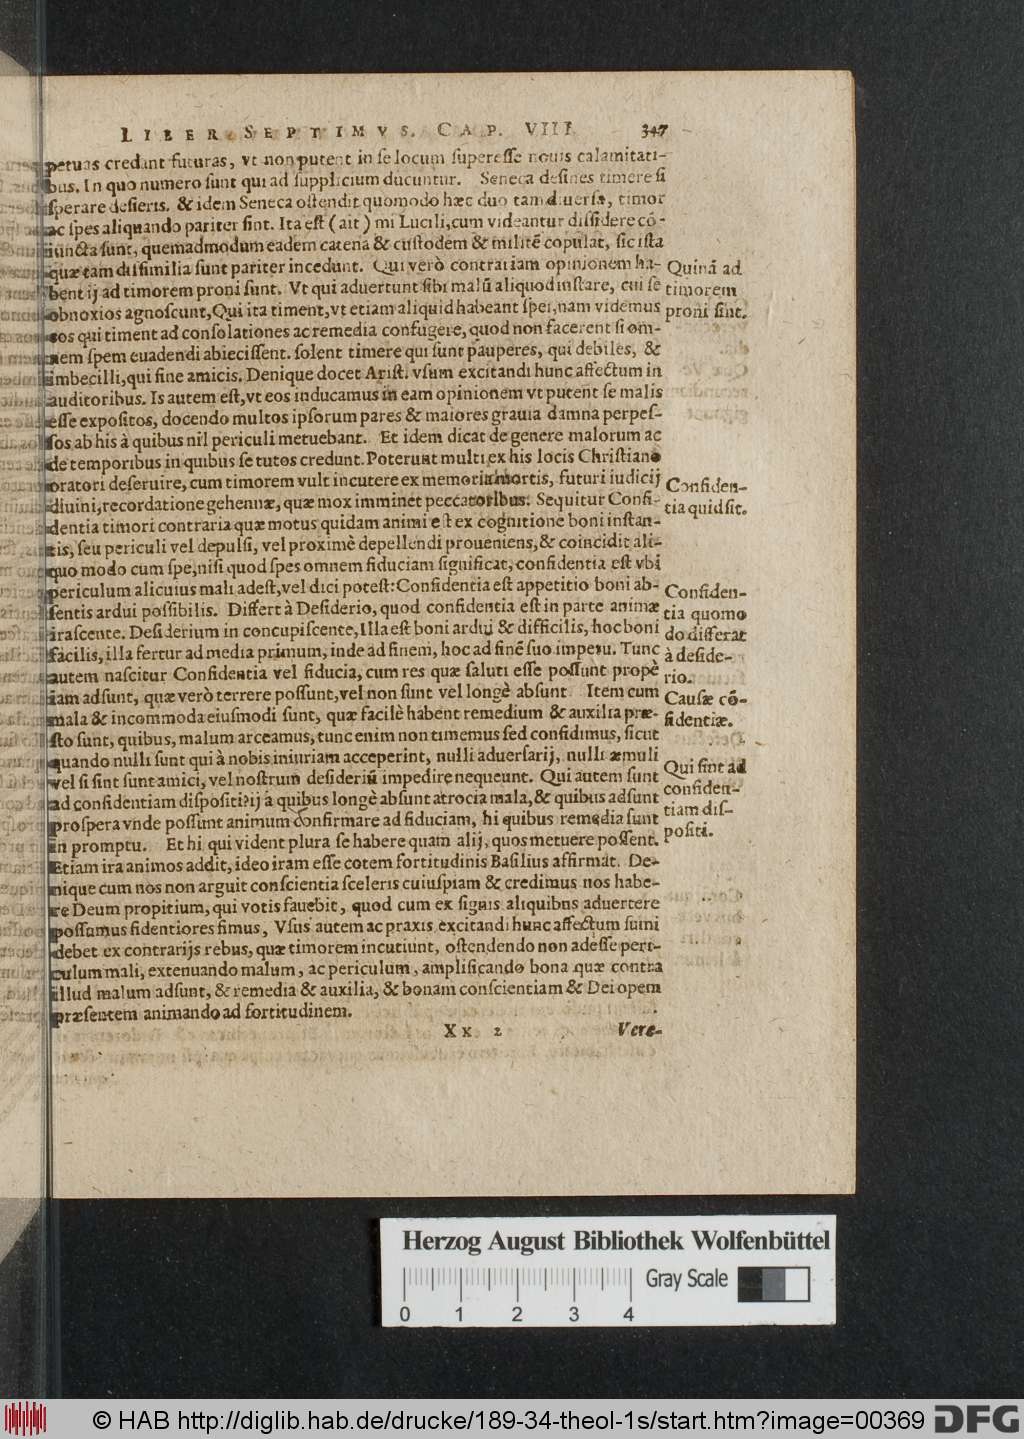 LIBER SEPTIMVS. CAP. VIII. 347
petuas credant futuras, vt non putent in se locum superesse nouis calamitati-
bus. In quo numero sunt qui ad supplicium ducuntur. Seneca desines timere si
sperare desieris. & idem Seneca ostendit quomodo hæc duo tam diuersa, timor
ac spes aliquando pariter sint. Ita est (ait) mi Lucili, cum videantur dissidere cō-
iuncta sunt, quemadmodum eadem catena & custodem & militē copulat, sic ista
quæ tam dissimilia sunt pariter incedunt. Qui verò contrariam opinionem ha-
bent ij ad timorem proni sunt. Vt qui aduertunt sibi malū aliquod instare, cui se
obnoxios agnoscunt, Qui ita timent, vt etiam aliquid habeant spei, nam videmus
eos qui timent ad consolationes ac remedia confugere, quod non facerent si om-
nem spem euadendi abiecissent. solent timere qui sunt pauperes, qui debiles, &
imbecilli, qui sine amicis. Denique docet Arist. vsum excitandi hunc affectum in
auditoribus. Is autem est, vt eos inducamus in eam opinionem vt putent se malis
esse expositos, docendo multos ipsorum pares & maiores grauia damna perpes-
sos ab his à quibus nil periculi metuebant. Et idem dicat de genere malorum ac
de temporibus in quibus se tutos credunt. Poterunt multi ex his locis Christiano
oratori deseruire, cum timorem vult incutere ex memoria mortis, futuri iudicij
diuini, recordatione gehennæ, quæ mox imminet peccatoribus. Sequitur Confi-
dentia timori contraria quæ motus quidam animi est ex cognitione boni instan-
tis, seu periculi vel depulsi, vel proximè depellendi proueniens, & coincidit ali-
quo modo cum spe, nisi quod spes omnem fiduciam significat, confidentia est vbi
periculum alicuius mali adest, vel dici potest: Confidentia est appetitio boni ab-
sentis ardui possibilis. Differt à Desiderio, quod confidentia est in parte animæ
irascente. Desiderium in concupiscente, Illa est boni ardui & difficilis, hoc boni
facilis, illa fertur ad media primum, inde ad finem, hoc ad finē suo impetu. Tunc
autem nascitur Confidentia vel fiducia, cum res quæ saluti esse possunt propè
iam adsunt, quæ verò terrere possunt, vel non sunt vel longè absunt. Item cum
mala & incommoda eiusmodi sunt, quæ facilè habent remedium & auxilia præ-
sto sunt, quibus, malum arceamus, tunc enim non timemus sed confidimus, sicut
quando nulli sunt qui à nobis iniuriam acceperint, nulli aduersarij, nulli æmuli
vel si sint sunt amici, vel nostrum desideriū impedire nequeunt. Qui autem sunt
ad confidentiam dispositi? ij à quibus longè absunt atrocia mala, & quibus adsunt
prospera vnde possunt animum confirmare ad fiduciam, hi quibus remedia sunt
in promptu. Et hi qui vident plura se habere quam alij, quos metuere possent.
Etiam ira animos addit, ideo iram esse cotem fortitudinis Basilius affirmat. De-
nique cum nos non arguit conscientia sceleris cuiuspiam & credimus nos habe-
re Deum propitium, qui votis fauebit, quod cum ex signis aliquibus aduertere
possumus fidentiores simus, Vsus autem ac praxis excitandi hunc affectum sumi
debet ex contrarijs rebus, quæ timorem incutiunt, ostendendo non adesse peri-
culum mali, extenuando malum, ac periculum, amplificando bona quæ contra
illud malum adsunt, & remedia & auxilia, & bonam conscientiam & Dei opem
præsentem animando ad fortitudinem.
Xx 2 Vere-
Quinā ad
timorem
proni sint.
Confiden-
tia quid sit.
Confiden-
tia quomo
do differat
à deside-
rio.
Causæ cō-
fidentiæ.
Qui sint ad
confiden-
tiam dis-
positi.
Herzog August Bibliothek Wolfenbüttel
Gray Scale
0 1 2 3 4
© HAB http://diglib.hab.de/drucke/189-34-theol-1s/start.htm?image=00369 DFG